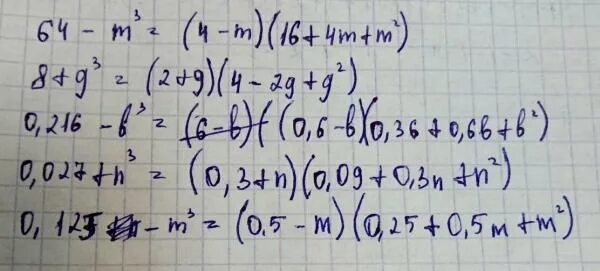 64 - m³ = (4 - m)(16 + 4m + m²)
8 + g³ = (2 + g)(4 - 2g + g²)
0,216 - b³ = (0,6 - b)(0,36 + 0,6b + b²)
0,027 + n³ = (0,3 + n)(0,09 + 0,3n + n²)
0,125 - m³ = (0.5 - m)(0,25 + 0,5m + m²)